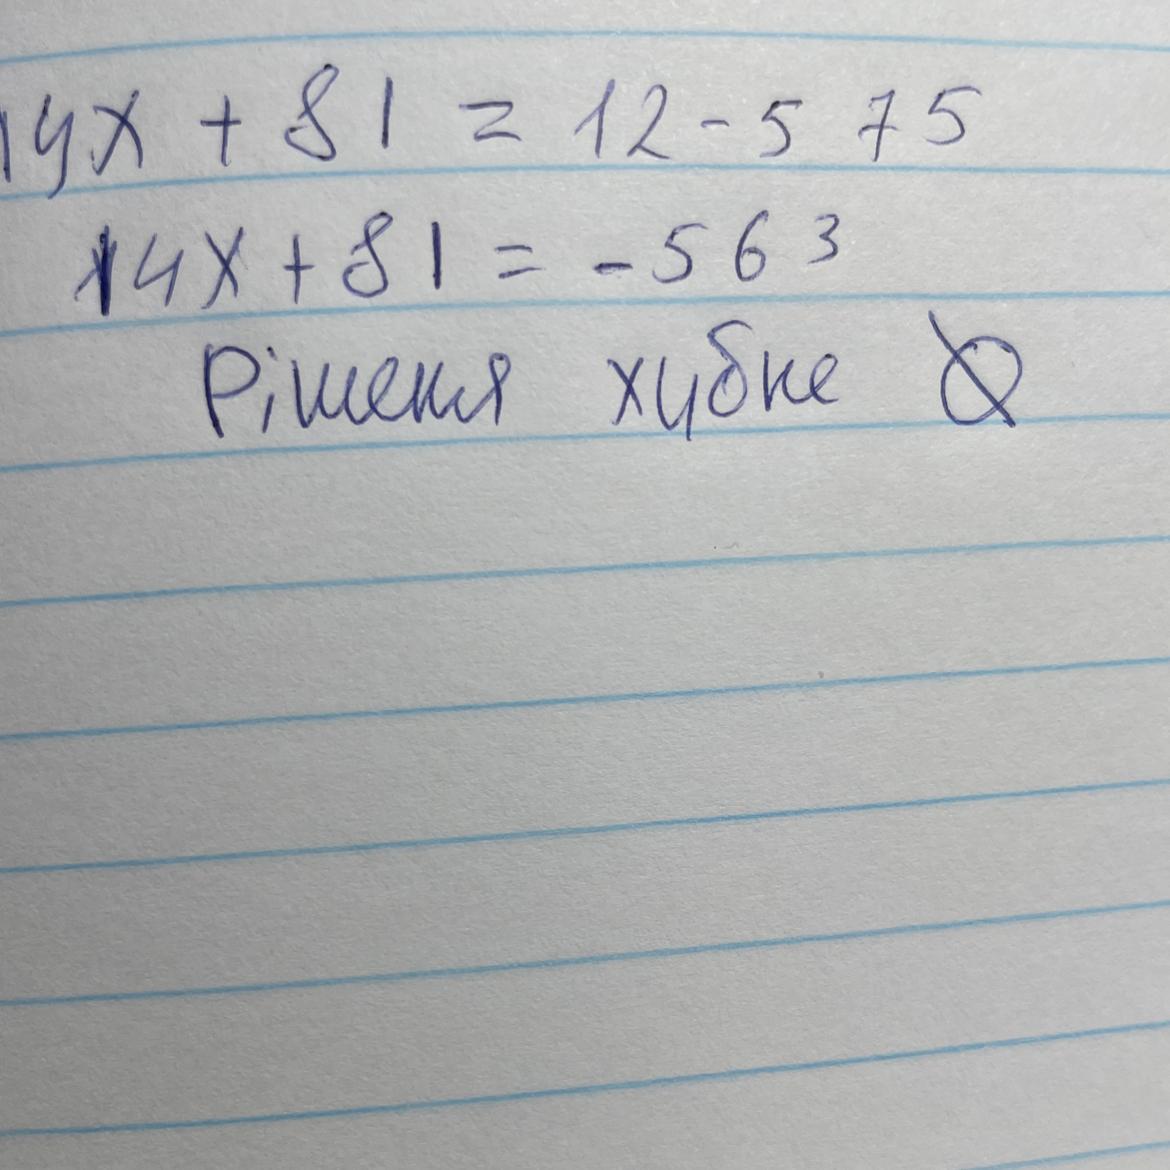 14x + 81 = 12 - 575
14x + 81 = -563
Рішеня хубне ∅